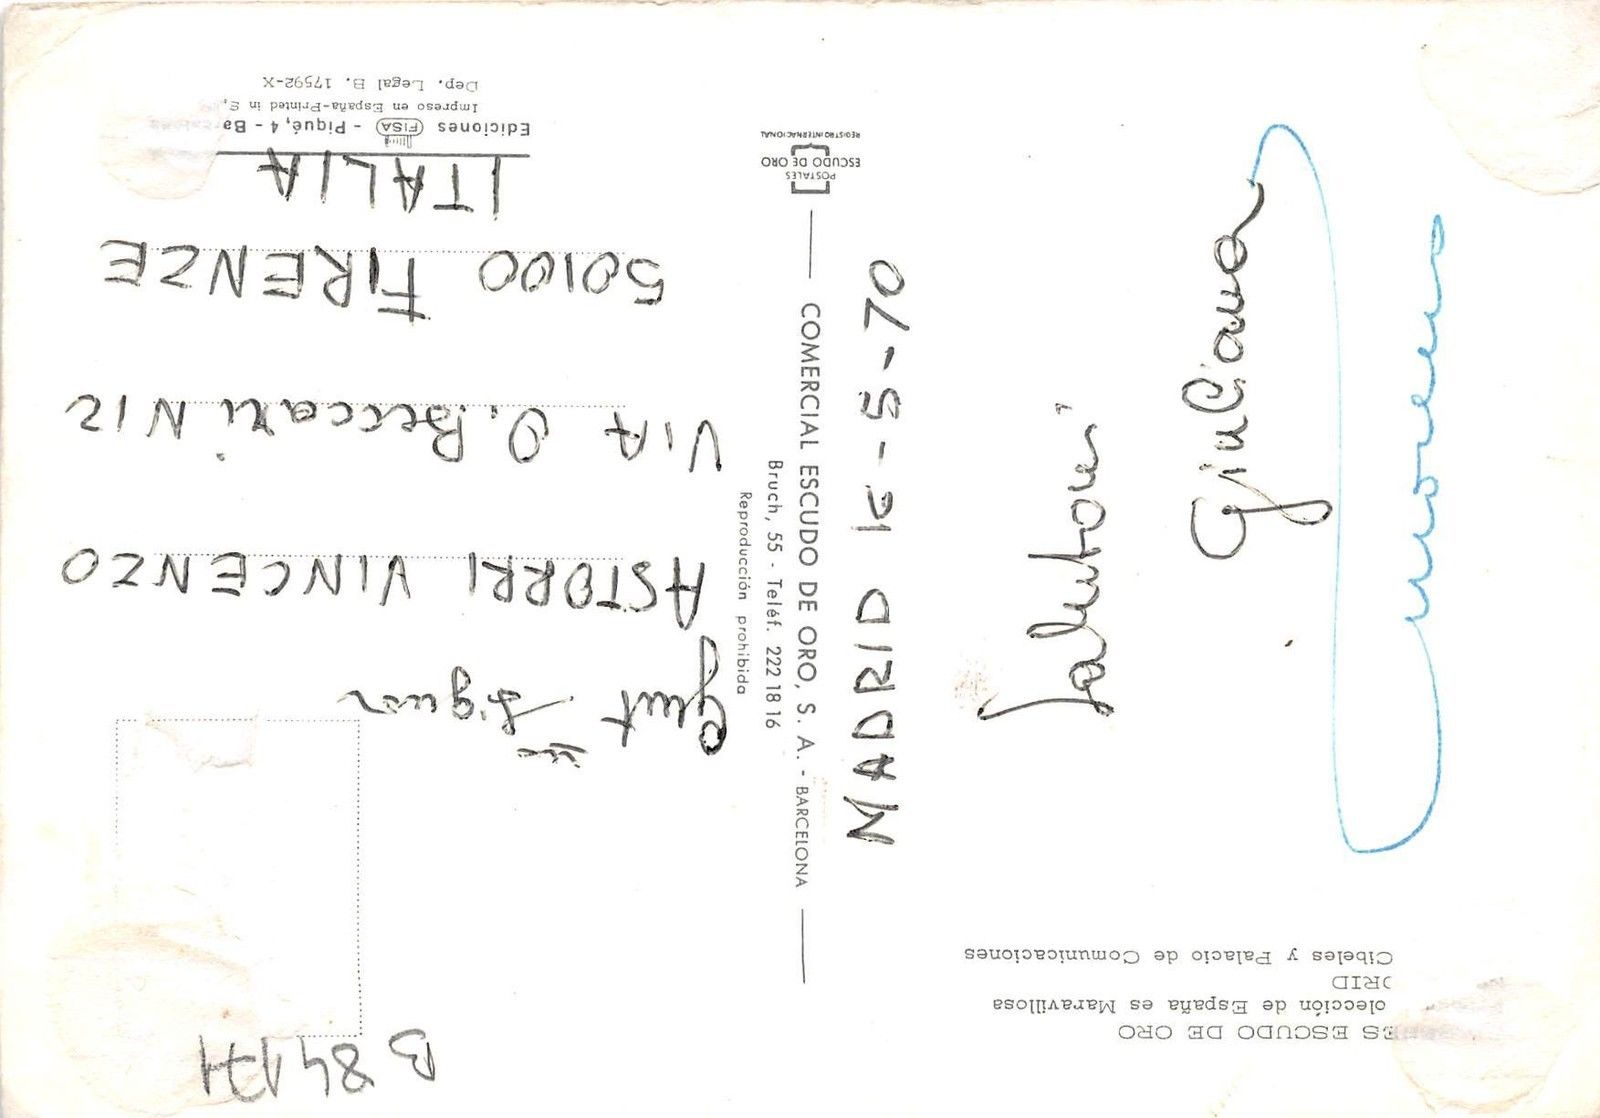 ES ESCUDO DE ORO
olección de España es Maravillosa
DRID
Cibeles y Palacio de Comunicaciones
MADRID 16-5-70
Saluton
Giuliana
POSTALES
ESCUDO DE ORO
REGISTRO INTERNACIONAL
COMERCIAL ESCUDO DE ORO, S. A. - BARCELONA
Bruch, 55 - Teléf. 222 18 16
Reproducción prohibida
B 84171
ASTORRI VINCENZO
VIA O. Beccari N 12
50100 FIRENZE
ITALIA
Ediciones FISA - Piqué, 4 - Ba
Impreso en España-Printed in S.
Dep. Legal B. 17592-X